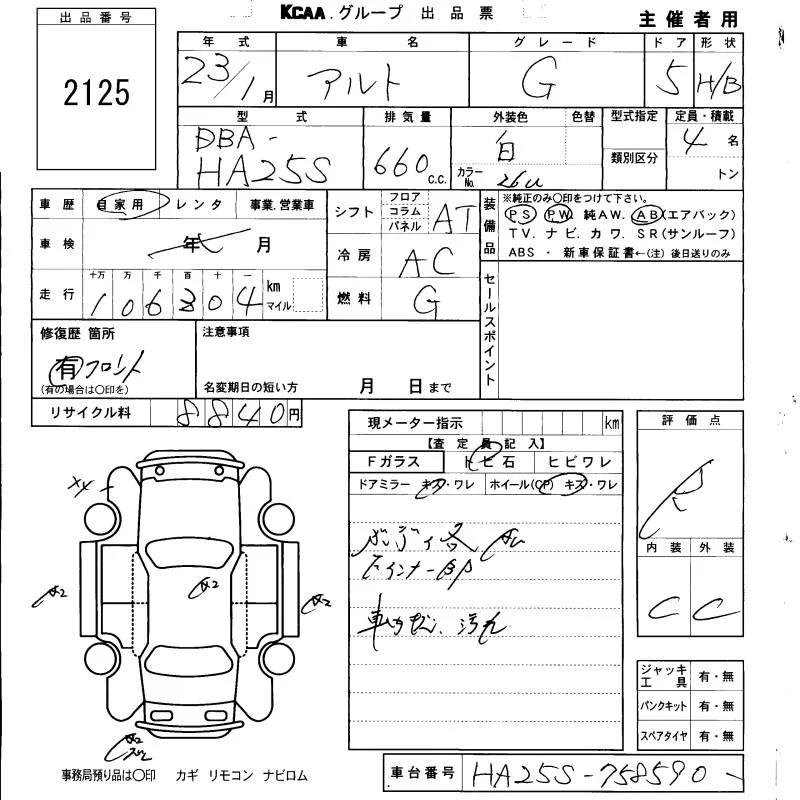 KCAA.グループ 出品票
主催者用
出品番号
2125
年式 車名 グレード ドア 形状
23/1月 アルト G 5 H/B
型式 排気量 外装色 色替 型式指定 定員・積載
DBA-
HA25S 660 c.c. 白 類別区分 4名
カラーNo. 26U トン
車歴 自家用 レンタ 事業.営業車
シフト フロア コラム パネル AT
装備品
※純正のみ○印をつけて下さい。
PS PW 純AW. AB(エアバック)
TV. ナビ. カワ. SR(サンルーフ)
ABS ・ 新車保証書←(注) 後日送りのみ
車検 年 月
冷房 AC
走行 十万 万 千 百 十 一
106304 km マイル
燃料 G
セールスポイント
修復歴 箇所
有 フロント
(有の場合は○印を)
注意事項
名変期日の短い方 月 日まで
リサイクル料 8840円
現メーター指示 km
【査定員記入】
Fガラス トビ石 ヒビワレ
ドアミラー キズ・ワレ ホイール(CP) キズ・ワレ
ボディ各
下インナー
車内 汚れ
評価点
R
内装 外装
C C
X4
A2
A2
A2
A2
ジャッキ工具 有・無
パンクキット 有・無
スペアタイヤ 有・無
事務局預り品は○印 カギ リモコン ナビロム
車台番号 HA25S-758590